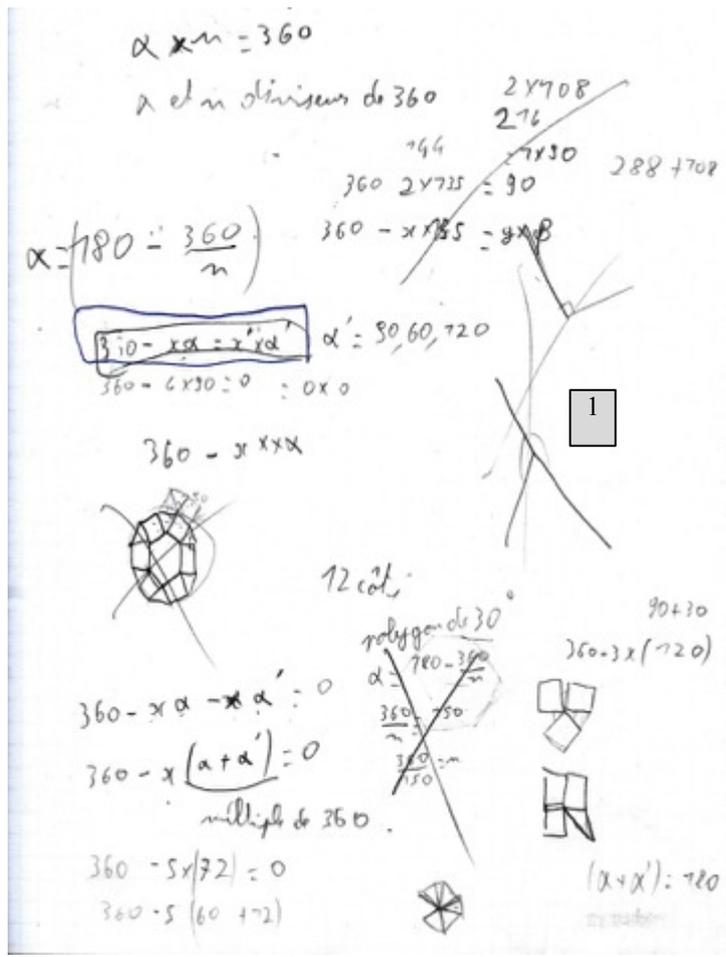 α x n = 360
α et n diviseurs de 360
2x108
216
144 = 1x90
288 + 108
360 2x135 = 90
360 - x x 135 = y x β
α = (180 - 360/n)
360 - xα = x'xα'
α' = 90, 60, 120
360 - 4x90 = 0 = 0x0
1
360 - x x x α
12 côtés
polygone de 30°
90+30
360-3x(120)
α = 180 - 360/n
360/n = 150
360/150 = n
360 - xα - xα' = 0
360 - x(α + α') = 0
multiple de 360.
360 - 5x(72) = 0
360 - 5(60 + 12)
(α+α') = 120